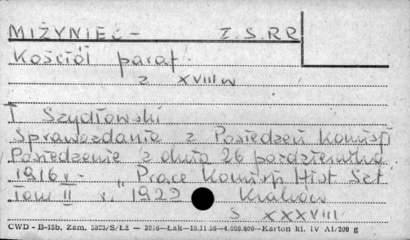 MIŻYNIEC - Z.S.RR
Kościół paraf.
z XVIII w
T Szydłowski
Sprawozdania z Posiedzeń Komisji
Posiedzenie z dnia 26 października
1916 r. „Prace Komisji Hist Szt
Tom II r. 1922 Kraków
S XXXVIII
CWD - B-15b. Zam. /S/Łż — — Łak — 15.11.56 — 4.000.000 — Karton kl. IV A1/200 g